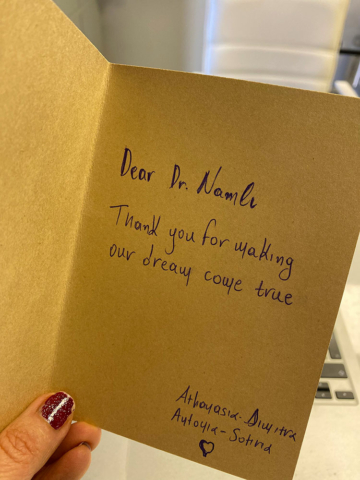 Dear Dr. Namlı
Thank you for making
our dream come true
Athanasia-Dimitra
Antonia-Sotiria